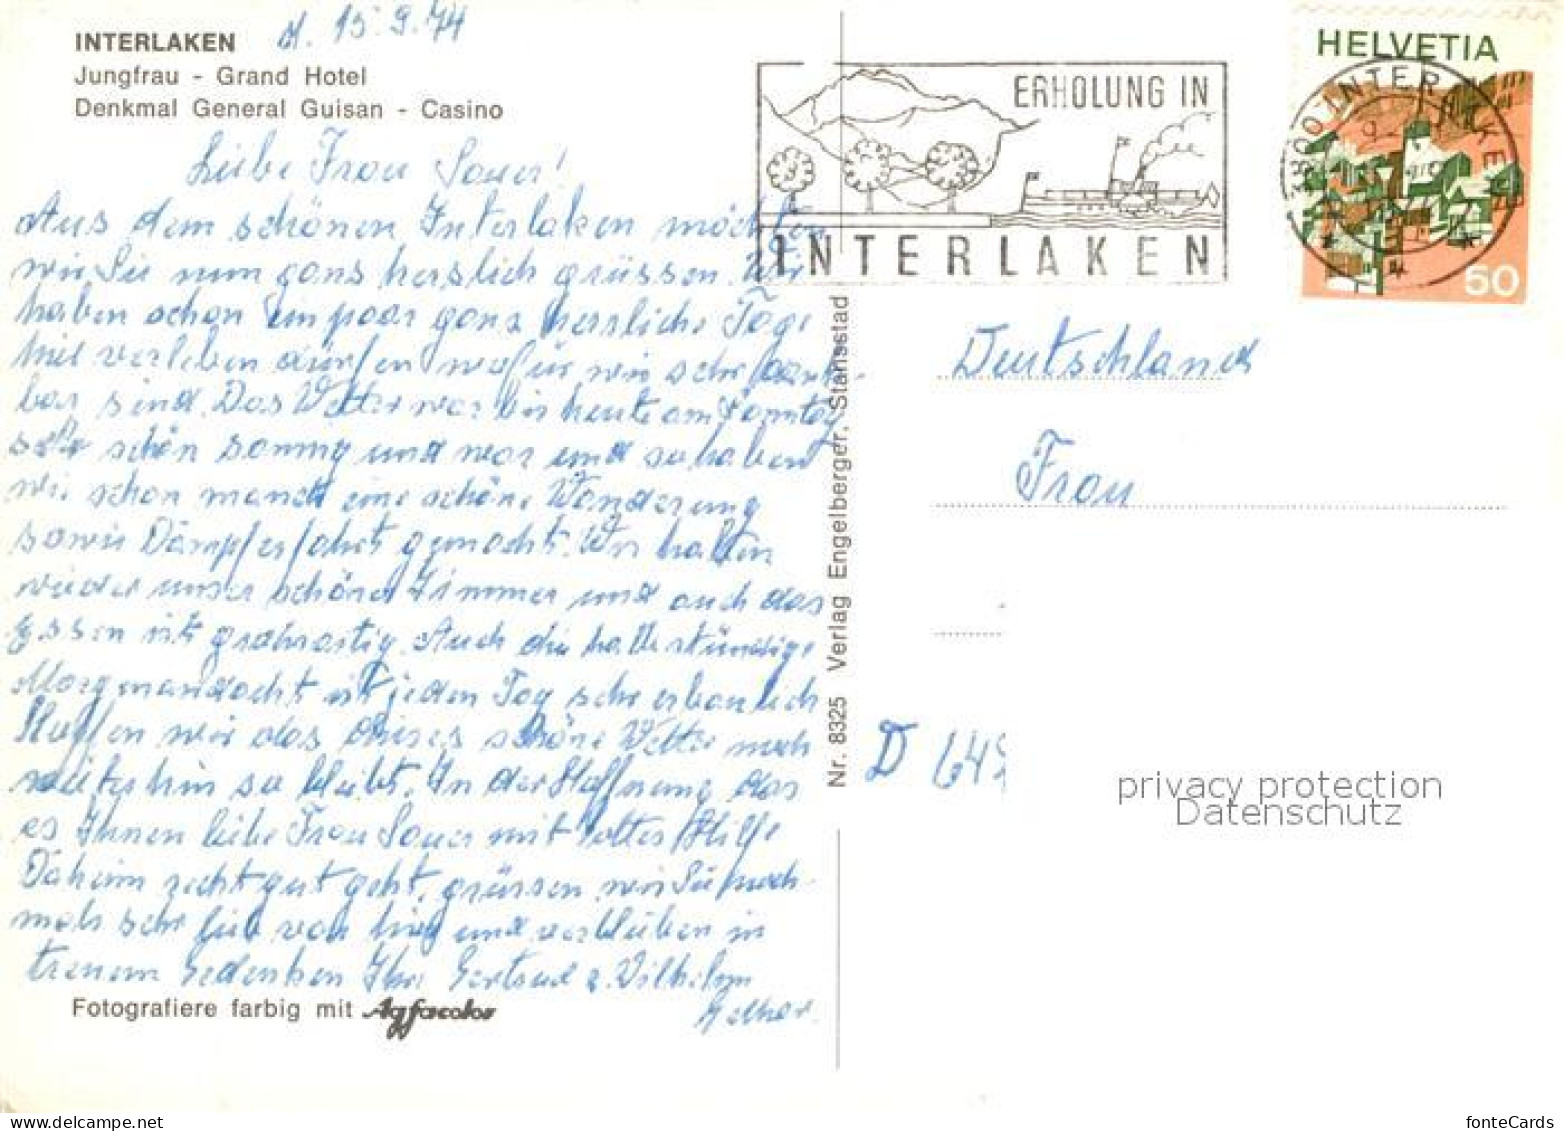 INTERLAKEN d. 15.9.74
Jungfrau - Grand Hotel
Denkmal General Guisan - Casino
Liebe Frau Sauer!
Aus dem schönen Interlaken möchten
wir Sie nun ganz herzlich grüssen. Wir
haben schon ein paar ganz herrliche Tage
hier verleben dürfen wofür wir sehr dank-
bar sind. Das Wetter war bis heute am Sonntag
sehr schön sonnig und warm und so haben
wir schon manch eine schöne Wanderung
sowie Dampferfahrt gemacht. Wir hatten
wieder unser schönes Zimmer und auch das
Essen ist großartig. Auch die halbstündige
Morgenandacht ist jeden Tag sehr erbaulich
Hoffen wir das dieses schöne Wetter noch
weiterhin so bleibt. In der Hoffnung das
es Ihnen liebe Frau Sauer mit Gottes Hilfe
Daheim recht gut geht, grüssen wir Sie noch-
mals sehr lieb von hier und verbleiben in
treuem Gedenken Ihre Gertrud u. Wilhelm
Fotografiere farbig mit Agfacolor
Nr. 8325 Verlag Engelberger, Stansstad
ERHOLUNG IN
INTERLAKEN
HELVETIA
3800 INTERLAKEN
50
Deutschland
Frau
D 649
privacy protection
Datenschutz
fonteCards